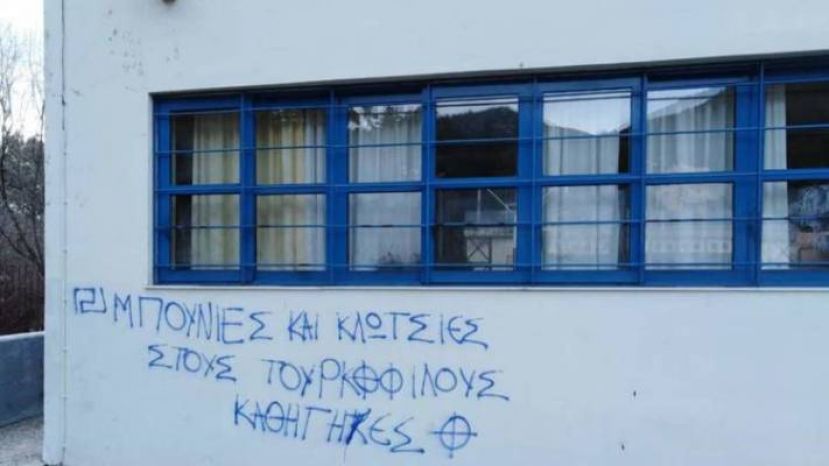 ΜΠΟΥΝΙΕΣ ΚΑΙ ΚΛΩΤΣΙΕΣ
ΣΤΟΥΣ ΤΟΥΡΚΟΦΙΛΟΥΣ
ΚΑΘΗΓΗΤΕΣ